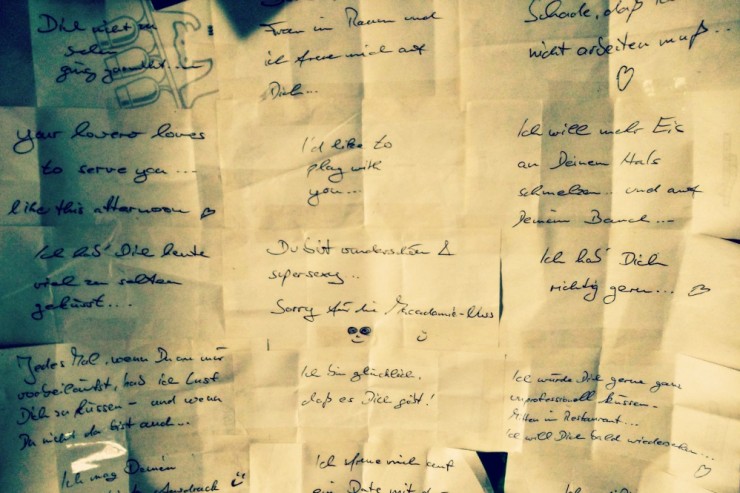 Dich nicht zu
sehr
Frau im Raum und
ich freue mich auf
Dich...
Schade, daß
nicht arbeiten muß...
your lovero loves
to serve you...
like this afternoon
I'd like to
play with
you...
Ich will mehr Eis
an Deinem Hals
schmelzen... und auf
Deinem Bauch...
Ich hab' Dich heute
viel zu selten
geküsst...
Du bist wunderschön &
supersexy...
Sorry für die Macadamia-Nuss
Ich hab' Dich
richtig gern...
Jedes Mal, wenn Du an mir
vorbeiläufst, hab ich Lust
Dich zu küssen - und wenn
Du nicht da bist auch...
Ich bin glücklich,
daß es Dich gibt!
Ich würde Dich gerne ganz
unprofessionell küssen -
Mitten im Restaurant...
Ich will Dich bald wiedersehen...
Ich mag Deinen
Ausdruck
Ich freue mich auf
ein Date mit